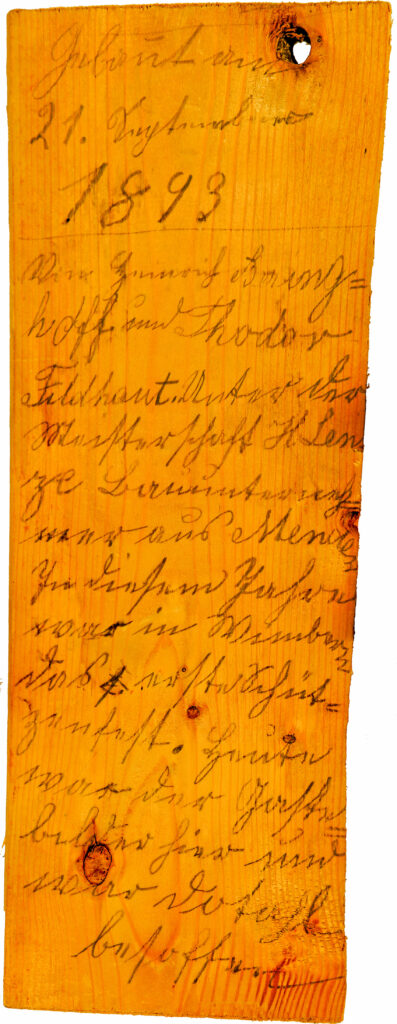 Gebaut am
21. September
1893
Von Heinrich Baeng=
hoff und Thodor
Feldhaut. Unter der
Meisterschaft H Len
ze Bauunterneh=
mer aus Menden
In diesem Jahre
war in Wimbern
das erste Schüt=
zenfest. Heute
war der
hier und
war total
besoffen